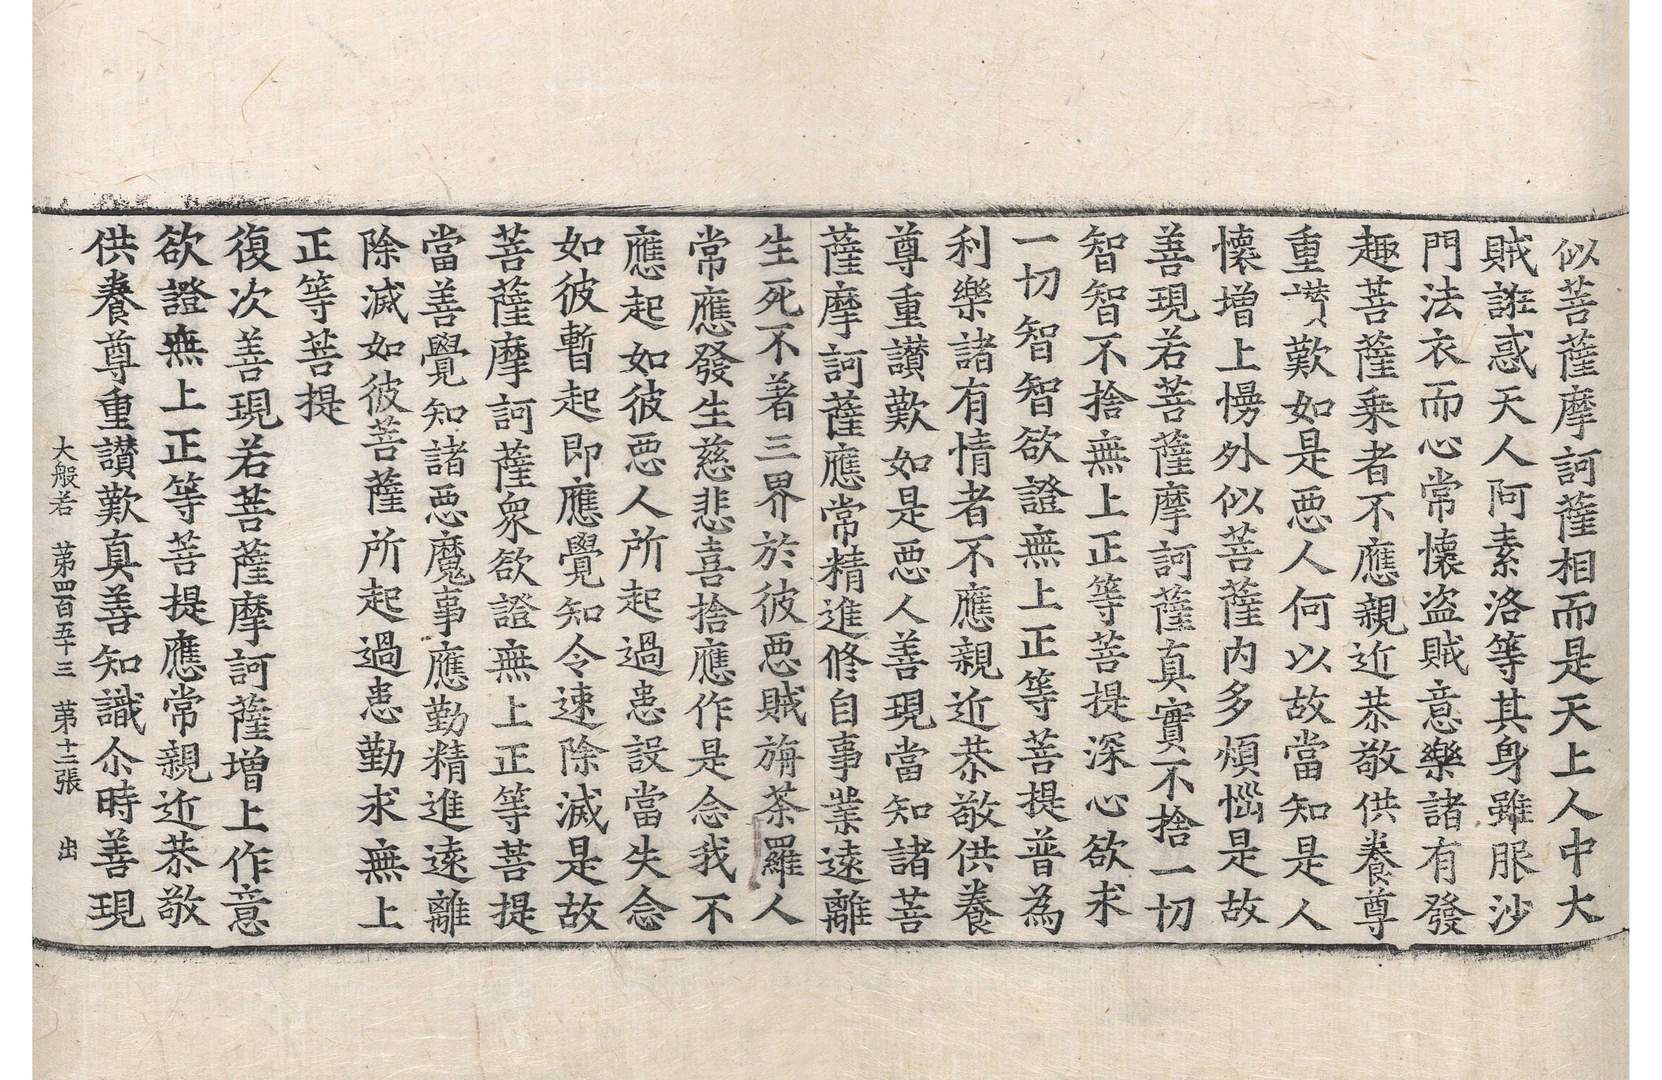 似菩薩摩訶薩相而是天上人中大
賊誑惑天人阿素洛等其身雖服沙
門法衣而心常懷盗賊意樂諸有發
趣菩薩乗者不應親近恭敬供養尊
重讃歎如是惡人何以故當知是人
懷增上慢外似菩薩内多煩惱是故
善現若菩薩摩訶薩真實不捨一切
智智不捨無上正等菩提深心欲求
一切智智欲證無上正等菩提普為
利樂諸有情者不應親近恭敬供養
尊重讃歎如是惡人善現當知諸菩
薩摩訶薩應常精進修自事業遠離
生死不著三界於彼惡賊旃荼羅人
常應發生慈悲喜捨應作是念我不
應起如彼惡人所起過患設當失念
如彼暫起即應覺知令速除滅是故
菩薩摩訶薩衆欲證無上正等菩提
當善覺知諸惡魔事應勤精進遠離
除滅如彼菩薩所起過患勤求無上
正等菩提
復次善現若菩薩摩訶薩增上作意
欲證無上正等菩提應常親近恭敬
供養尊重讃歎真善知識尒時善現
大般若　第四百五十三　第十二張　出